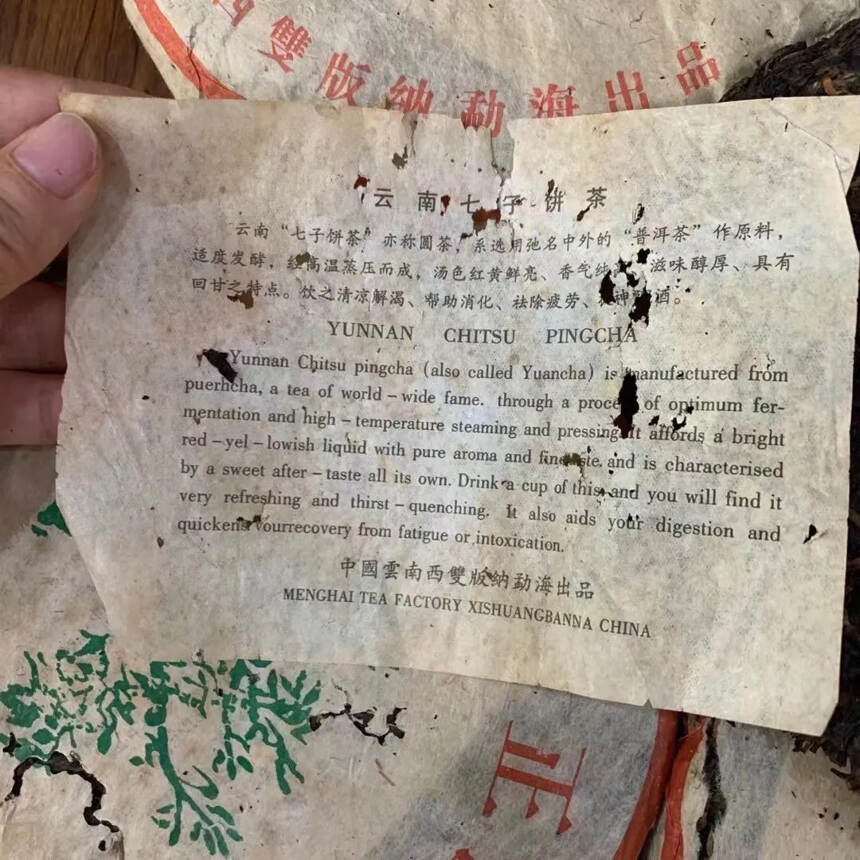 雙版纳勐海出品
云南七子饼茶
云南“七子饼茶”亦称圆茶，系选用弛名中外的“普洱茶”作原料，
适度发酵，经高温蒸压而成，汤色红黄鲜亮、香气纯 滋味醇厚、具有
回甘之特点。饮之清凉解渴、帮助消化、祛除疲劳、 神 酒。
YUNNAN CHITSU PINGCHA
Yunnan Chitsu pingcha (also called Yuancha) is manufactured from
puerhcha, a tea of world – wide fame. through a process of optimum fer-
mentation and high – temperature steaming and pressing. It affords a bright
red – yel – lowish liquid with pure aroma and fine taste. and is characterised
by a sweet after – taste all its own. Drink a cup of this, and you will find it
very refreshing and thirst – quenching. It also aids your digestion and
quickens yourrecovery from fatigue or intoxication.
中國雲南西雙版纳勐海出品
MENGHAI TEA FACTORY XISHUANGBANNA CHINA
正